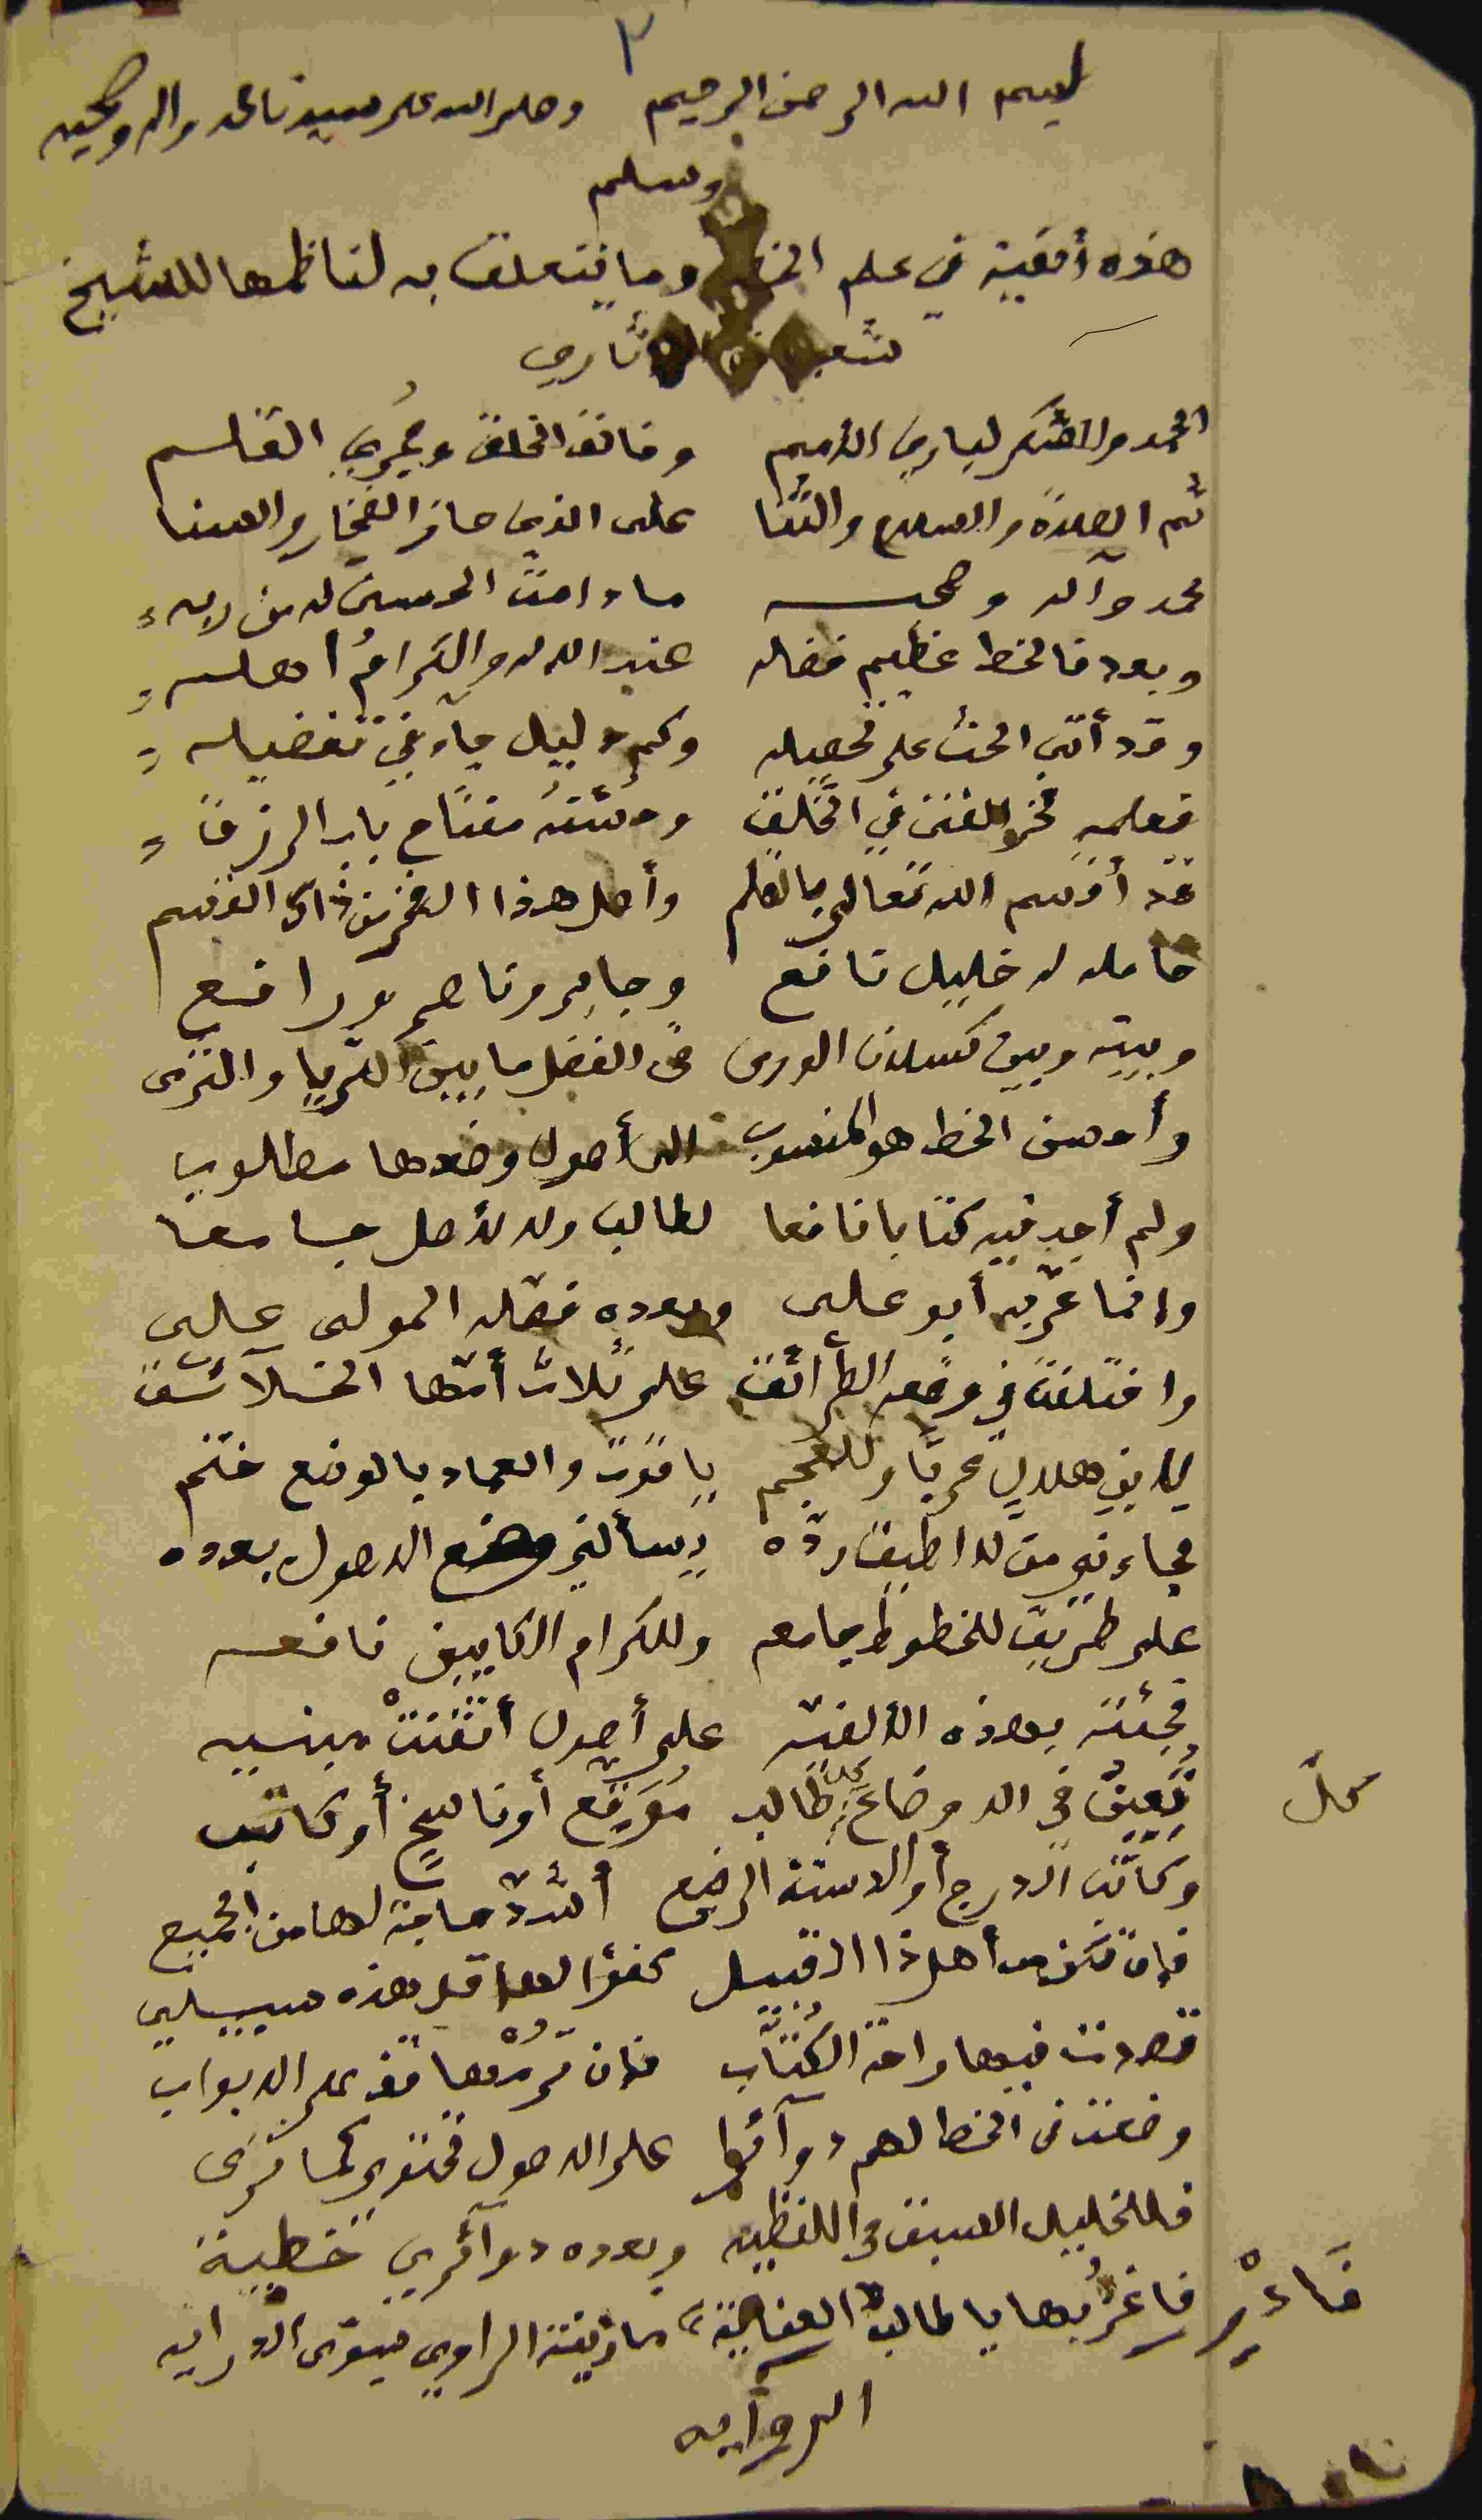 ٢
بسم الله الرحمن الرحيم وصلى الله على سيدنا محمد واله وصحبه
وسلم
هذه ألفية في علم الخط وما يتعلق به لناظمها للشيخ
شعبان الآثاري
الحمد والشكر لباري الأمم وخالق الخلق ومجري القلم
ثم الصلاة والسلام والثنا على الذي حاز الفخار والسنا
محمد وآله وصحبه ما دامت الحسنى له من ربه
وبعد فالخط عظيم فضله عند الاله والكرام أهله
وقد أتى الحث على تحصيله وكم دليل جآء في تفضيله
فعلمه نحو الفتى في الخلق وحسنه مفتاح باب الرزق
قد أقسم الله تعالى بالقلم وأصل هذا الفخر من ذاك القسم
حامله له خليل نافع وجابر وناصر ورافع
وبينه وبين كسلان الورى في الفضل ما بين الثريا والثرى
وأحسن الخط هو المنسوب الى أصول وضعها مطلوب
ولم أجد فيه كتابا نافعا لطالب ولا لأصل جامعا
وانما عربه أبو علي وبعده فضله المولى علي
واختلفت في وضعه الطرائق على ثلاث أمها الخلآئق
لابن هلال عربا وللعجم ياقوت والعماد بالوضع ختم
فجاءني من لا اطيق رده يسألني وضع الاصول بعده
على طريق للخطوط جامعه وللكرام الكاتبين نافعه
فجئته بهذه الألفيه على أصول أتقنت مبنيه
تعين في الاوضاع كل طالب موقع أو ناسخ أو كاتب
كل
وكاتب الدرج أو الدست الرفيع أشد حاجة لها من الجميع
فان تكن من أهل ذا القبيل كفؤا لها قل هذه سبيلي
قصدت فيها راحة الكتاب فان ترمها قف على الابواب
وضعت في الخط لهم دوآئرا على الاصول تحتوي كما ترى
فللخليل السبق في اللفظيه وبعده دوآئري خطية
فاعن بها يا طالب العناية ما زينة الراوي سوى الدرايه
الروايه